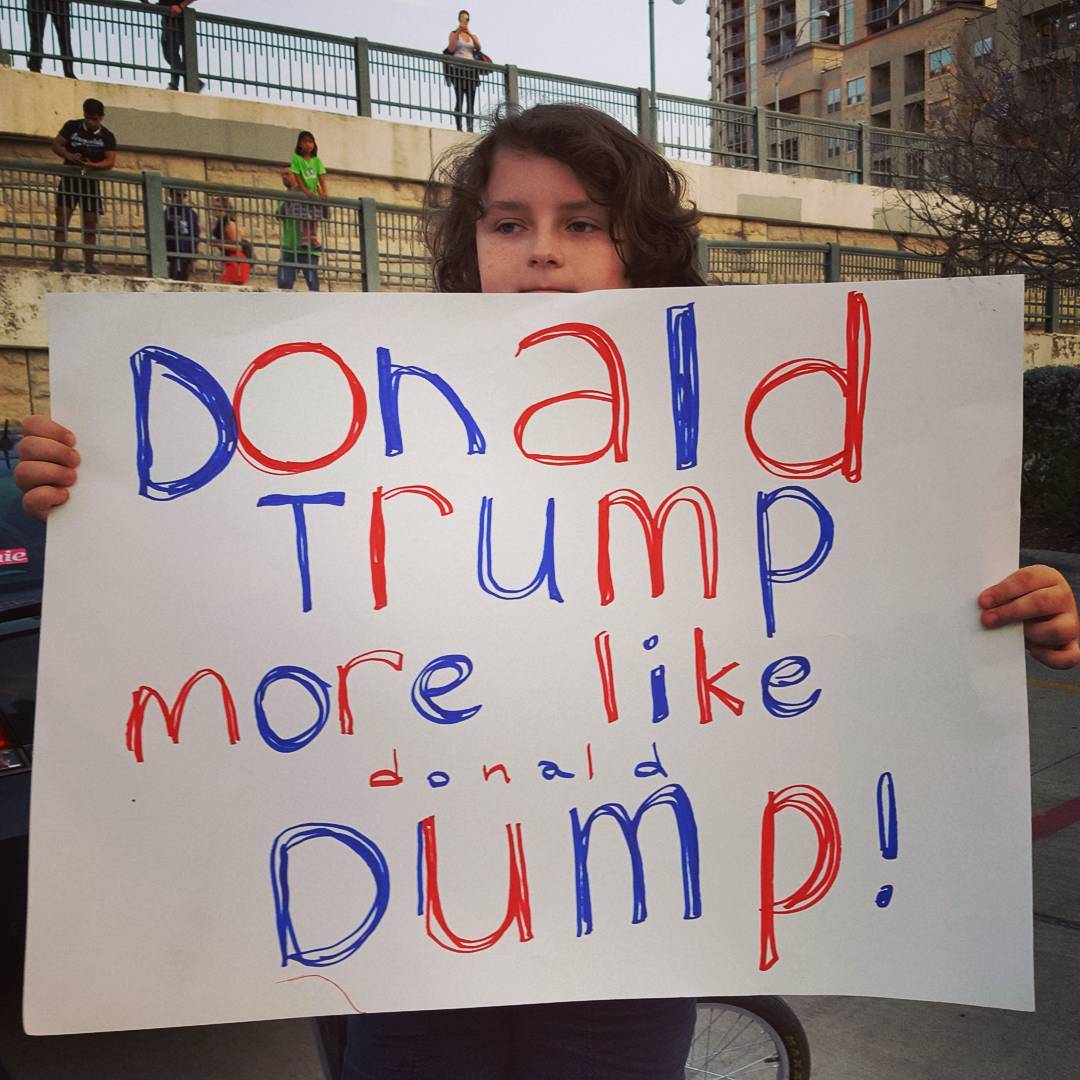 Donald
Trump
more like
donald
Dump!